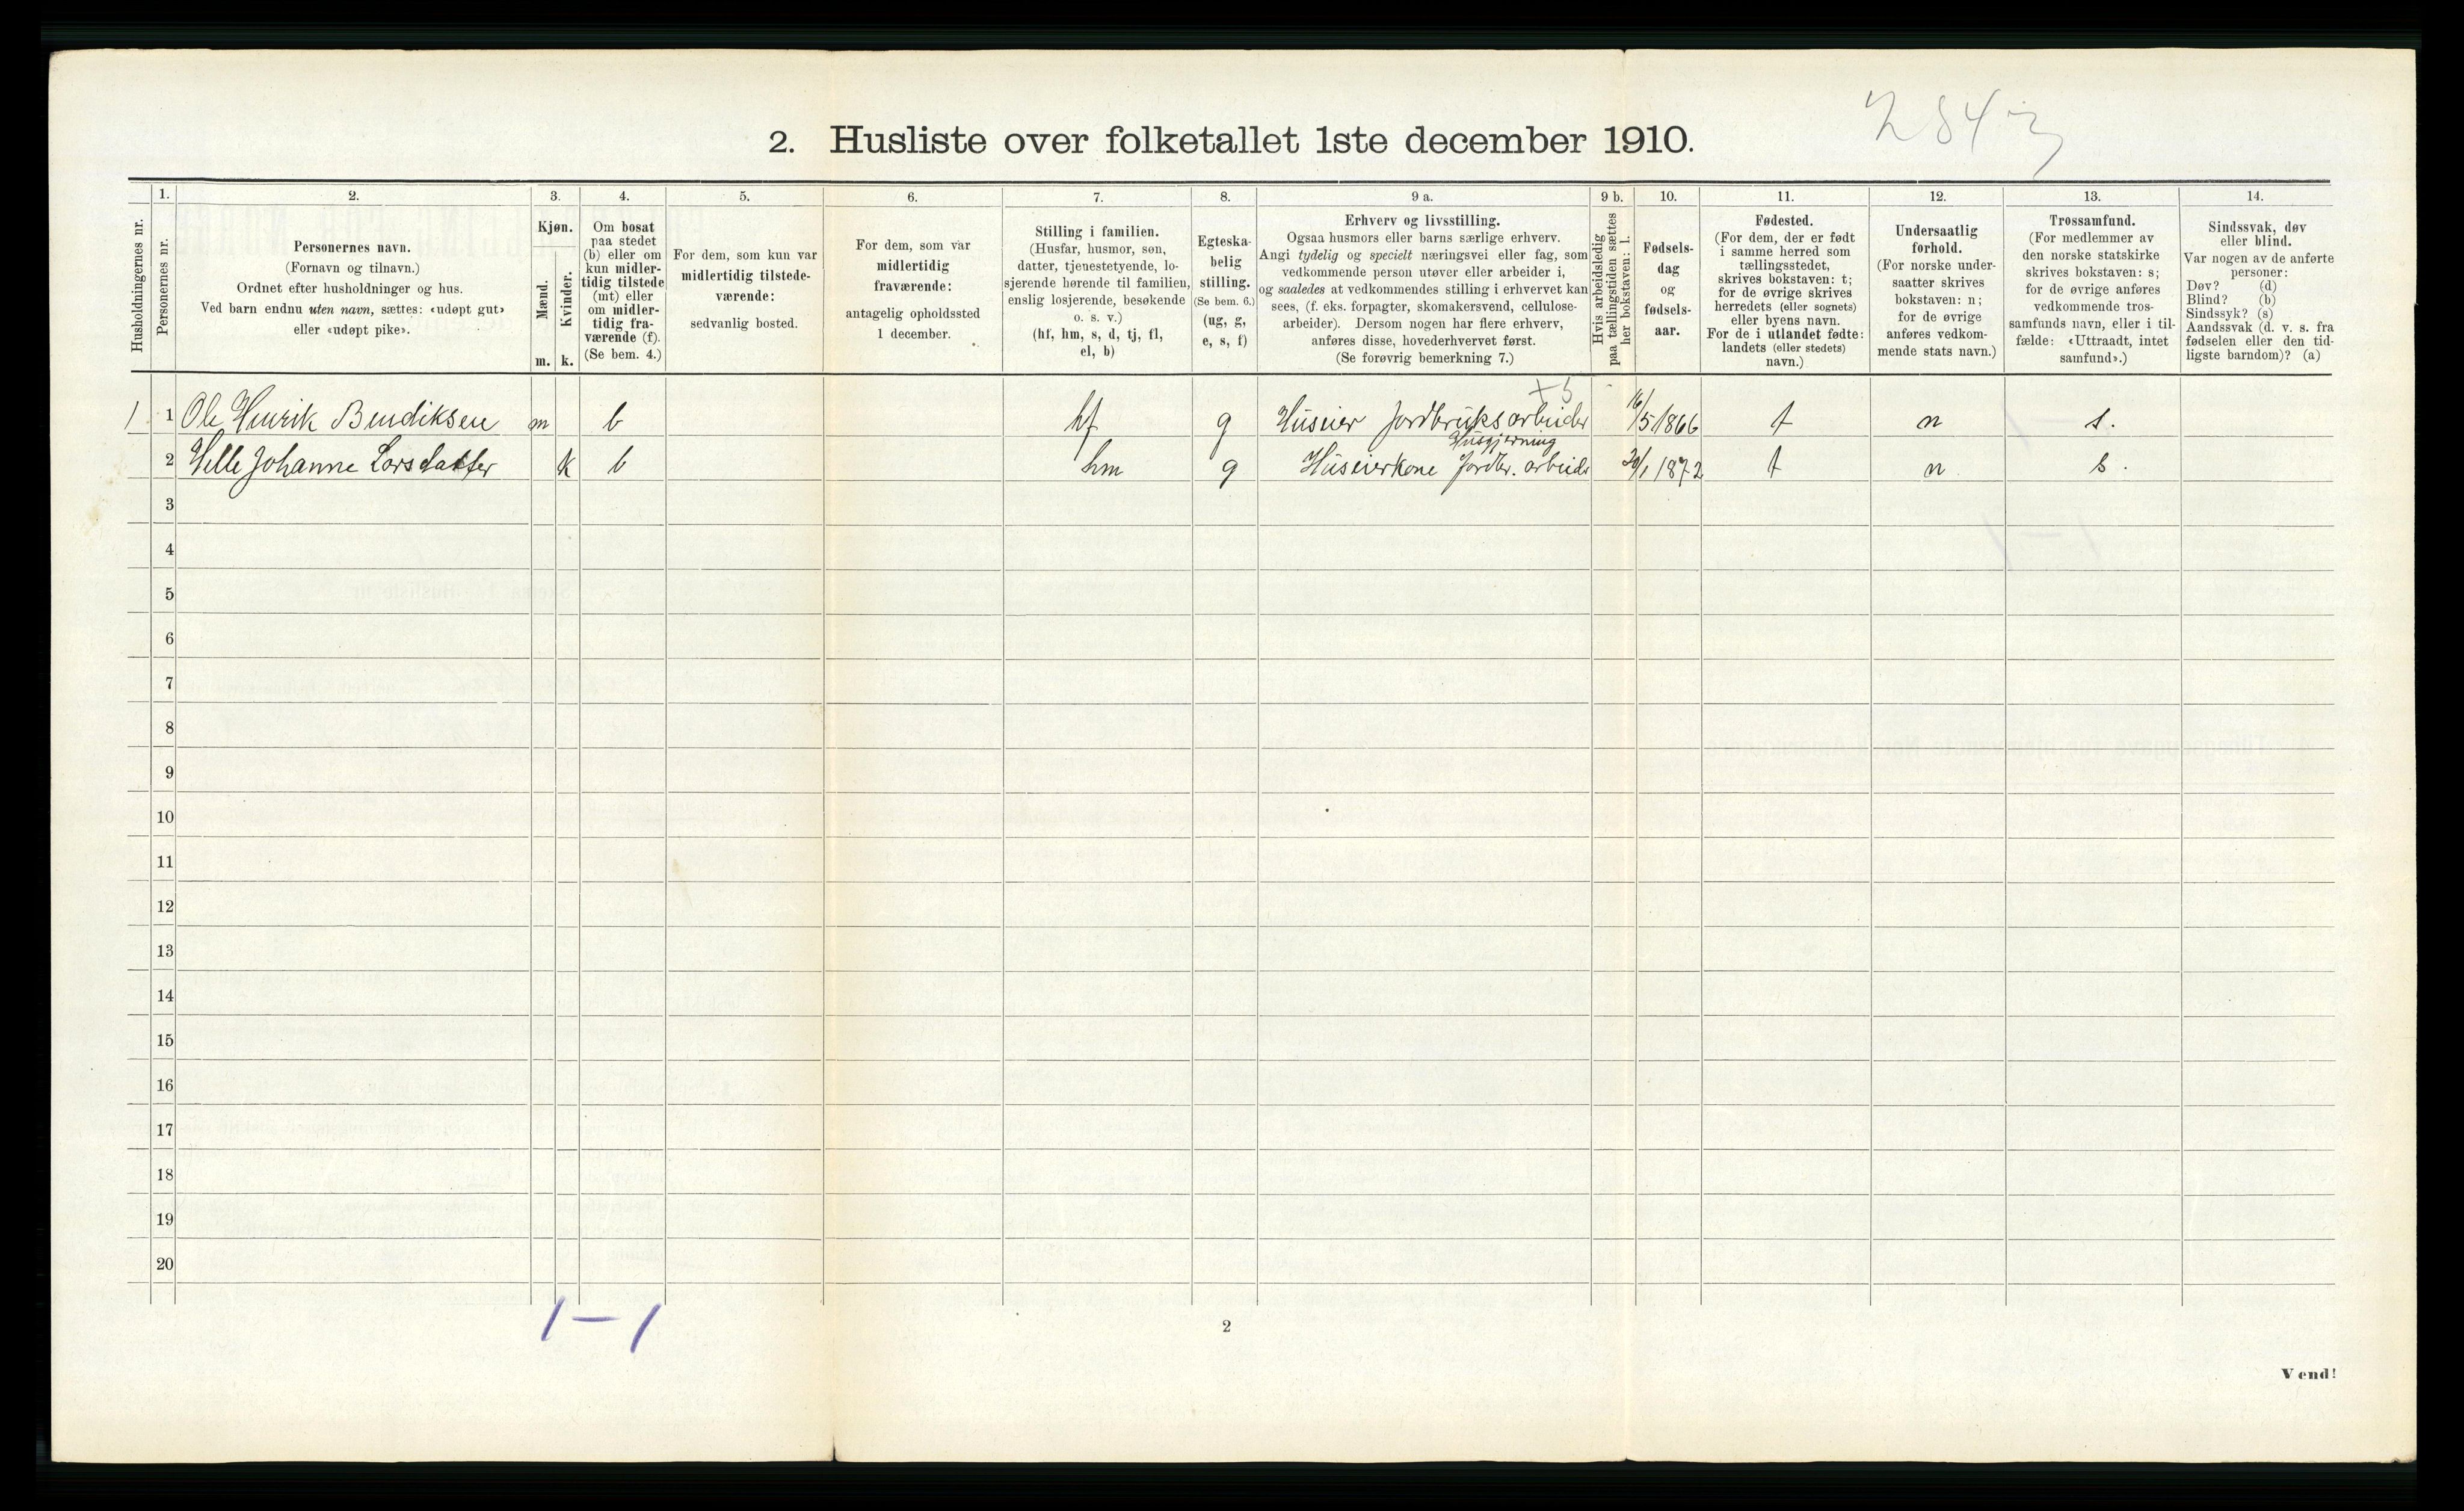 2843
2. Husliste over folketallet 1ste december 1910.
Husholdningernes nr.
1.
Personernes nr.
2.
Personernes navn.
(Fornavn og tilnavn.)
Ordnet efter husholdninger og hus.
Ved barn endnu uten navn, sættes: «udøpt gut»
eller «udøpt pike».
3.
Kjøn.
Mænd.
Kvinder.
m. k.
4.
Om bosat
paa stedet
(b) eller om
kun midler-
tidig tilstede
(mt) eller
om midler-
tidig fra-
værende (f).
(Se bem. 4.)
5.
For dem, som kun var
midlertidig tilstede-
værende:
sedvanlig bosted.
6.
For dem, som var
midlertidig
fraværende:
antagelig opholdssted
1 december.
7.
Stilling i familien.
(Husfar, husmor, søn,
datter, tjenestetyende, lo-
sjerende hørende til familien,
enslig losjerende, besøkende
o. s. v.)
(hf, hm, s, d, tj, fl,
el, b)
8.
Egteska-
belig
stilling.
(Se bem. 6.)
(ug, g,
e, s, f)
9 a.
Erhverv og livsstilling.
Ogsaa husmors eller barns særlige erhverv.
Angi tydelig og specielt næringsvei eller fag, som
vedkommende person utøver eller arbeider i,
og saaledes at vedkommendes stilling i erhvervet kan
sees, (f. eks. forpagter, skomakersvend, cellulose-
arbeider). Dersom nogen har flere erhverv,
anføres disse, hovederhvervet først.
(Se forøvrig bemerkning 7.)
9 b.
Hvis arbeidsledig
paa tællingstiden sættes
her bokstaven: l.
10.
Fødsels-
dag
og
fødsels-
aar.
11.
Fødested.
(For dem, der er født
i samme herred som
tællingsstedet,
skrives bokstaven: t;
for de øvrige skrives
herredets (eller sognets)
eller byens navn.
For de i utlandet fødte:
landets (eller stedets)
navn.)
12.
Undersaatlig
forhold.
(For norske under-
saatter skrives
bokstaven: n;
for de øvrige
anføres vedkom-
mende stats navn.)
13.
Trossamfund.
(For medlemmer av
den norske statskirke
skrives bokstaven: s;
for de øvrige anføres
vedkommende tros-
samfunds navn, eller i til-
fælde: «Uttraadt, intet
samfund».)
14.
Sindssvak, døv
eller blind.
Var nogen av de anførte
personer:
Døv? (d)
Blind? (b)
Sindssyk? (s)
Aandssvak (d. v. s. fra
fødselen eller den tid-
ligste barndom)? (a)
+5
1 1 Ole Henrik Bendiksen m b hf g Huseier Jordbruksarbeider 16/5 1866 t n s.
Husgjerning
2 Helle Johanne Larsdatter k b hm g Huseierkone Jordbr. arbeide 20/1 1872 t n s.
3
4
5
6
7
8
9
10
11
12
13
14
15
16
17
18
19
20
1–1
2
Vend!